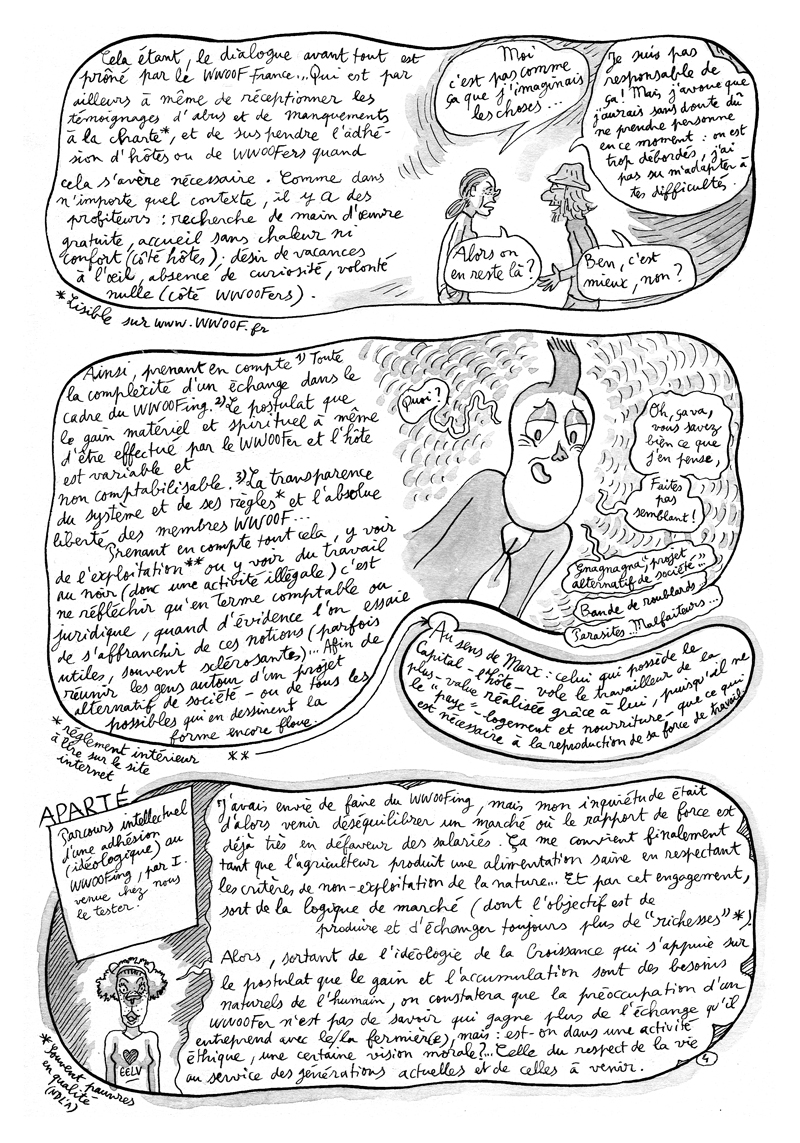 Cela étant, le dialogue avant tout est
prôné par le WWOOF France... Qui est par
ailleurs à même de réceptionner les
témoignages d'abus et de manquements
à la charte*, et de suspendre l'adhé-
sion d'hôtes ou de WWOOFers quand
cela s'avère nécessaire. Comme dans
n'importe quel contexte, il y a des
profiteurs : recherche de main d'œuvre
gratuite, accueil sans chaleur ni
confort (côté hôtes) ; désir de vacances
à l'œil, absence de curiosité, volonté
nulle (côté WWOOFers).
*Lisible sur www.WWOOF.fr
Moi
c'est pas comme
ça que j'imaginais
les choses...
Je suis pas
responsable de
ça! Mais j'avoue que
j'aurais sans doute dû
ne prendre personne
en ce moment : on est
trop débordés, j'ai
pas su m'adapter à
tes difficultés.
Alors on
en reste là?
Ben, c'est
mieux, non?
Ainsi, prenant en compte 1) Toute
la complexité d'un échange dans le
cadre du WWOOFing. 2) Le postulat que
le gain matériel et spirituel à même
d'être effectué par le WWOOFer et l'hôte
est variable et
non comptabilisable. 3) La transparence
du système et de ses règles* et l'absolue
liberté des membres WWOOF...
Prenant en compte tout cela, y voir
de l'exploitation** ou y voir du travail
au noir (donc une activité illégale) c'est
ne réfléchir qu'en terme comptable ou
juridique, quand d'évidence l'on essaie
de s'affranchir de ces notions (parfois
utiles, souvent sclérosantes)... Afin de
réunir les gens autour d'un projet
alternatif de société - ou de tous les
possibles qui en dessinent la
forme encore floue.
* réglement intérieur
à lire sur le site
internet
**
Quoi?
Oh, ça va,
vous savez
bien ce que
j'en pense,
Faites
pas
semblant!
Gnagnagna "projet
alternatif de société"...
Bande de roublards
Parasites... Malfaiteurs...
Au sens de Marx : celui qui possède le
Capital - l'hôte - vole le travailleur de la
plus-value réalisée grâce à lui, puisqu'il ne
le "paye" - logement et nourriture - que ce qui
est nécessaire à la reproduction de sa force de travail.
APARTÉ
Parcours intellectuel
d'une adhésion
(idéologique) au
WWOOFing, par I.
venue chez nous
le tester.
J'avais envie de faire du WWOOFing, mais mon inquiétude était
d'alors venir déséquilibrer un marché où le rapport de force est
déjà très en défaveur des salariés. Ça me convient finalement
tant que l'agriculteur produit une alimentation saine en respectant
les critères de non-exploitation de la nature... Et par cet engagement,
sort de la logique de marché (dont l'objectif est de
produire et d'échanger toujours plus de "richesses"*)
Alors, sortant de l'idéologie de la Croissance qui s'appuie sur
le postulat que le gain et l'accumulation sont des besoins
naturels de l'humain, on constatera que la préoccupation d'un
WWOOFer n'est pas de savoir qui gagne plus de l'échange qu'il
entreprend avec le/la fermièr(e), mais : est-on dans une activité
éthique, une certaine vision morale?... Celle du respect de la vie
au service des générations actuelles et de celles à venir.
EELV
* Souvent pauvres
en qualité
(NDLA)
4